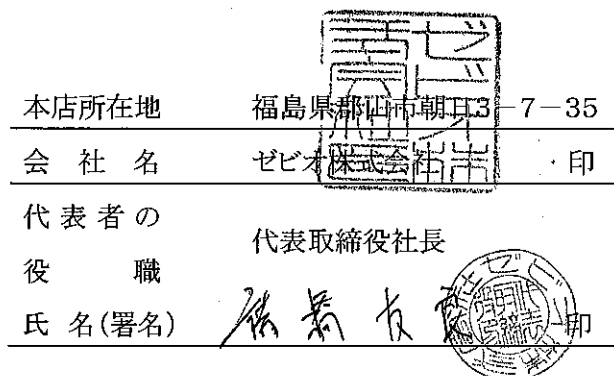 本店所在地 福島県郡山市朝日3-7-35
会社名 ゼビオ株式会社 印
代表者の
役職 代表取締役社長
氏名(署名) 友 印